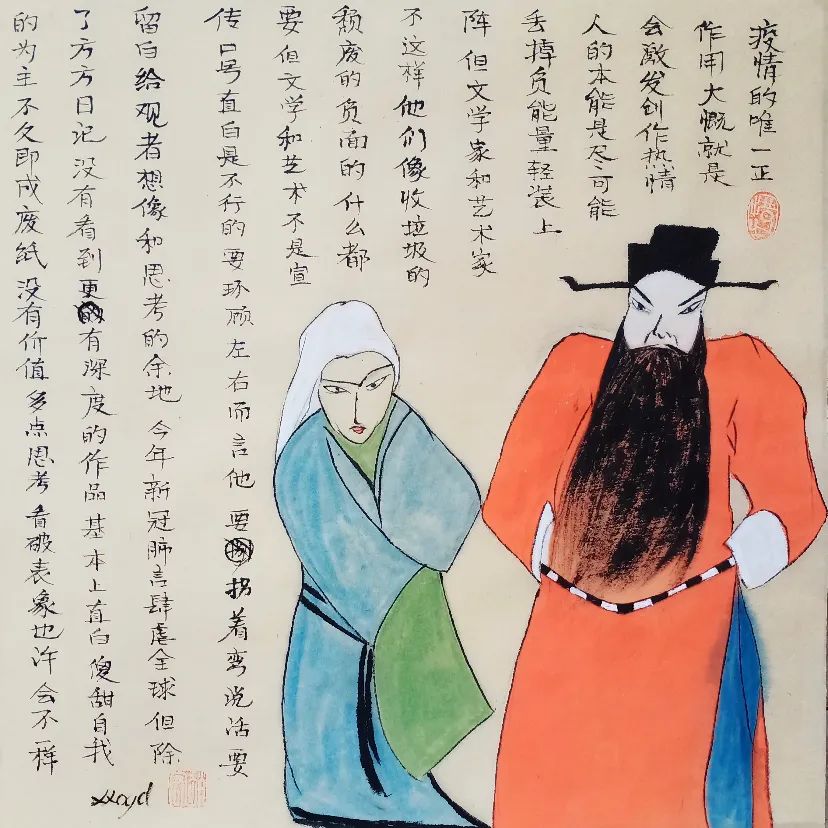 疫情的唯一正
作用大慨就是
会激发创作热情
人的本能是尽可能
丢掉负能量轻装上
阵但文学家和艺术家
不这样他们像收垃圾的
颓废的负面的什么都
要但文学和艺术不是宣
传口号直白是不行的要环顾左右而言他要拐着弯说话要
留白给观者想像和思考的余地今年新冠肺言肆虐全球但除
了方方日记没有看到更有深度的作品基本上直白傻甜自我
的为主不久即成废纸没有价值多点思考看破表象也许会不一样
Lloyd